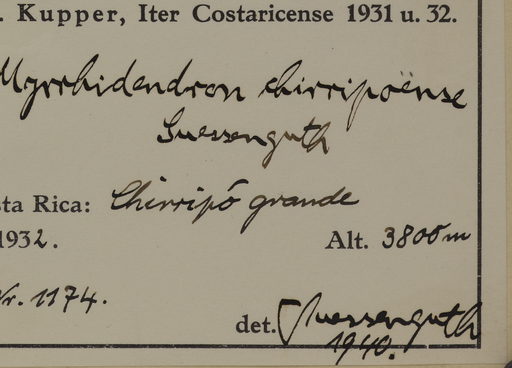 . Kupper, Iter Costaricense 1931 u. 32.
Myrrhidendron chirripoënse
Suessenguth
sta Rica: Chirripó grande
1932. Alt. 3800 m
Nr. 1174.
det. Suessenguth
1940.